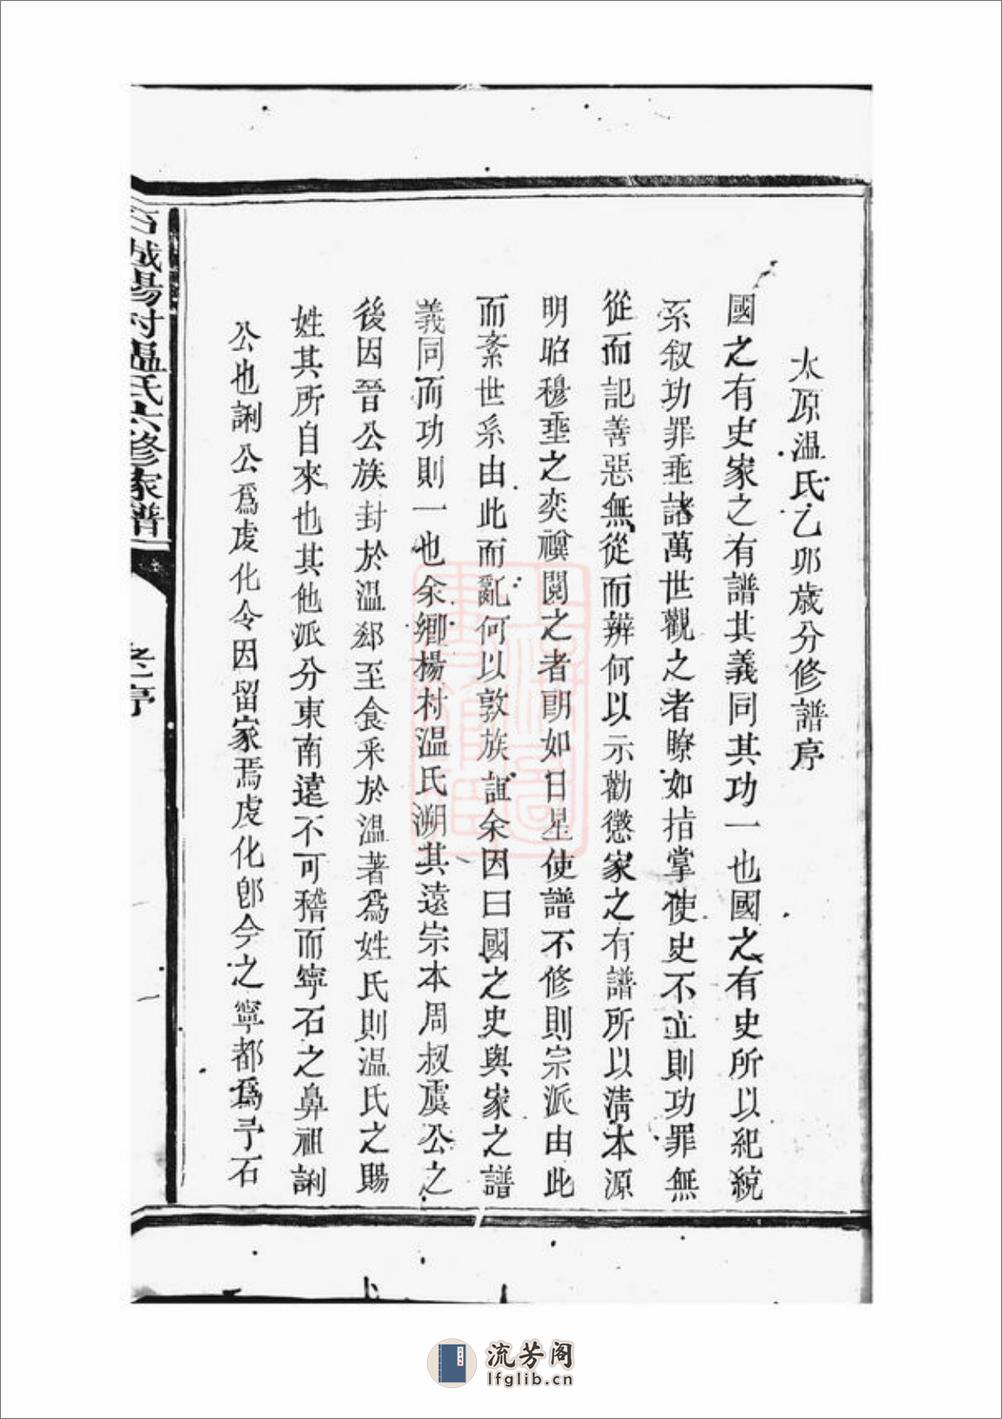 太原溫氏乙卯歲分修譜序
國之有史家之有譜其義同其功一也國之有史所以紀統
系叙功罪垂諸萬世觀之者瞭如指掌使史不立則功罪無
從而記善惡無從而辨何以示勸懲家之有譜所以清本源
明昭穆垂之奕禩閱之者朗如日星使譜不修則宗派由此
而紊世系由此而亂何以敦族誼余因曰國之史與家之譜
義同而功則一也余鄉楊村溫氏溯其遠宗本周叔虞公之
後因晉公族封於溫郄至食釆於溫著爲姓氏則溫氏之賜
姓其所自來也其他派分東南遠不可稽而寧石之鼻祖諴
公也諴公爲虔化令因留家焉虔化卽今之寧都爲予石
石城楊村溫氏六修家譜
序
流芳阁
lfglib.cn